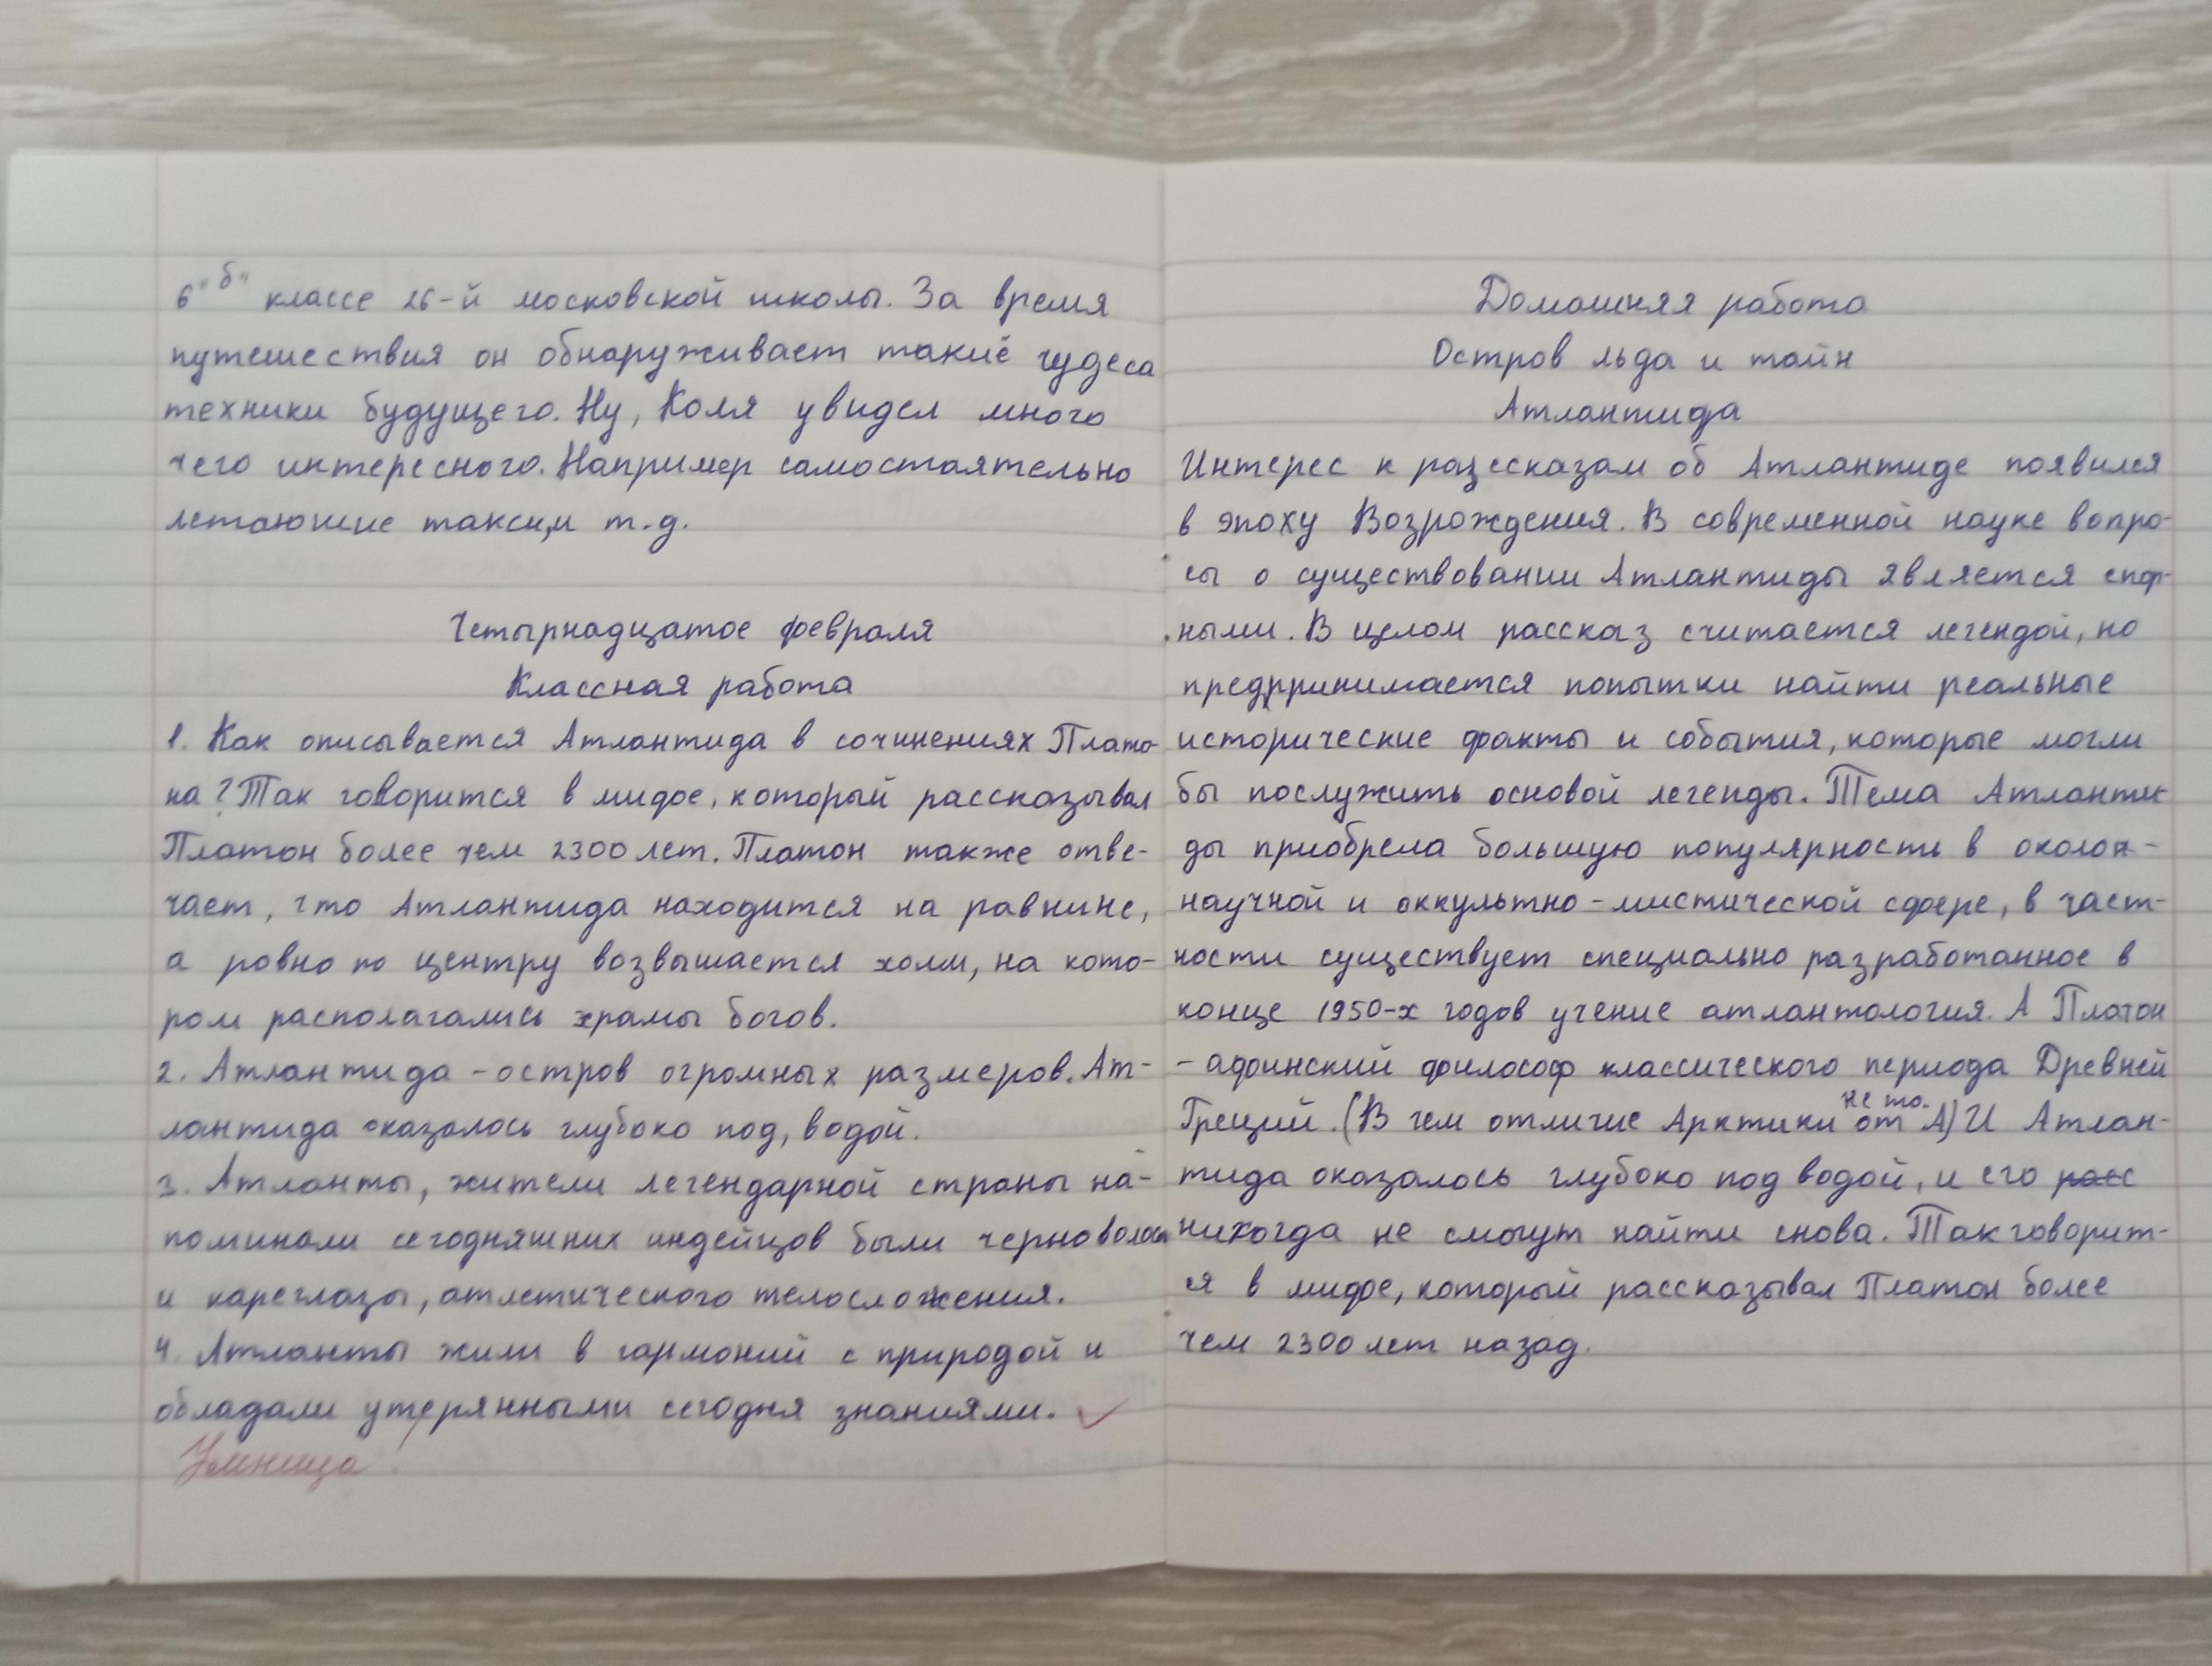 6 "б" классе 26-й московской школы. За время
путешествия он обнаруживает такие чудеса
техники будущего. Ну, Коля увидел много
чего интересного. Например самостоятельно
летающие такси,и т.д.
Четырнадцатое февраля
Классная работа
1. Как описывается Атлантида в сочинениях Плато-
на? Так говорится в мифе, который рассказывал
Платон более чем 2300 лет. Платон также отве-
чает, что Атлантида находится на равнине,
а ровно по центру возвышается холм, на кото-
ром располагались храмы богов.
2. Атлантида - остров огромных размеров. Ат-
лантида оказалось глубоко под, водой.
3. Атланты, жители легендарной страны на-
поминали сегодняшних индейцов были черноволосы
и кареглазы, атлетического телосложения.
4. Атланты жили в гармоний с природой и
обладали утерянными сегодня знаниями.
Умница!
Домашняя работа
Остров льда и тайн
Атлантида
Интерес к разссказам об Атлантиде появился
в эпоху Возрождения. В современной науке вопро-
сы о существовании Атлантиды является спор-
ными. В целом рассказ считается легендой, но
предпринимается попытки найти реальные
исторические факты и события, которые могли
бы послужить основой легенды. Тема Атланти-
ды приобрела большую популярность в около-
научной и оккультно-мистической сфере, в част-
ности существует специально разработанное в
конце 1950-х годов учение атлантология. А Платон
- афинский философ классического периода Древней
Греций. (В чем отличие Арктики от А) не то. И Атлан-
тида оказалось глубоко под водой, и его расс
никогда не смогут найти снова. Так говорит-
ся в мифе, который рассказывал Платон более
чем 2300 лет назад.